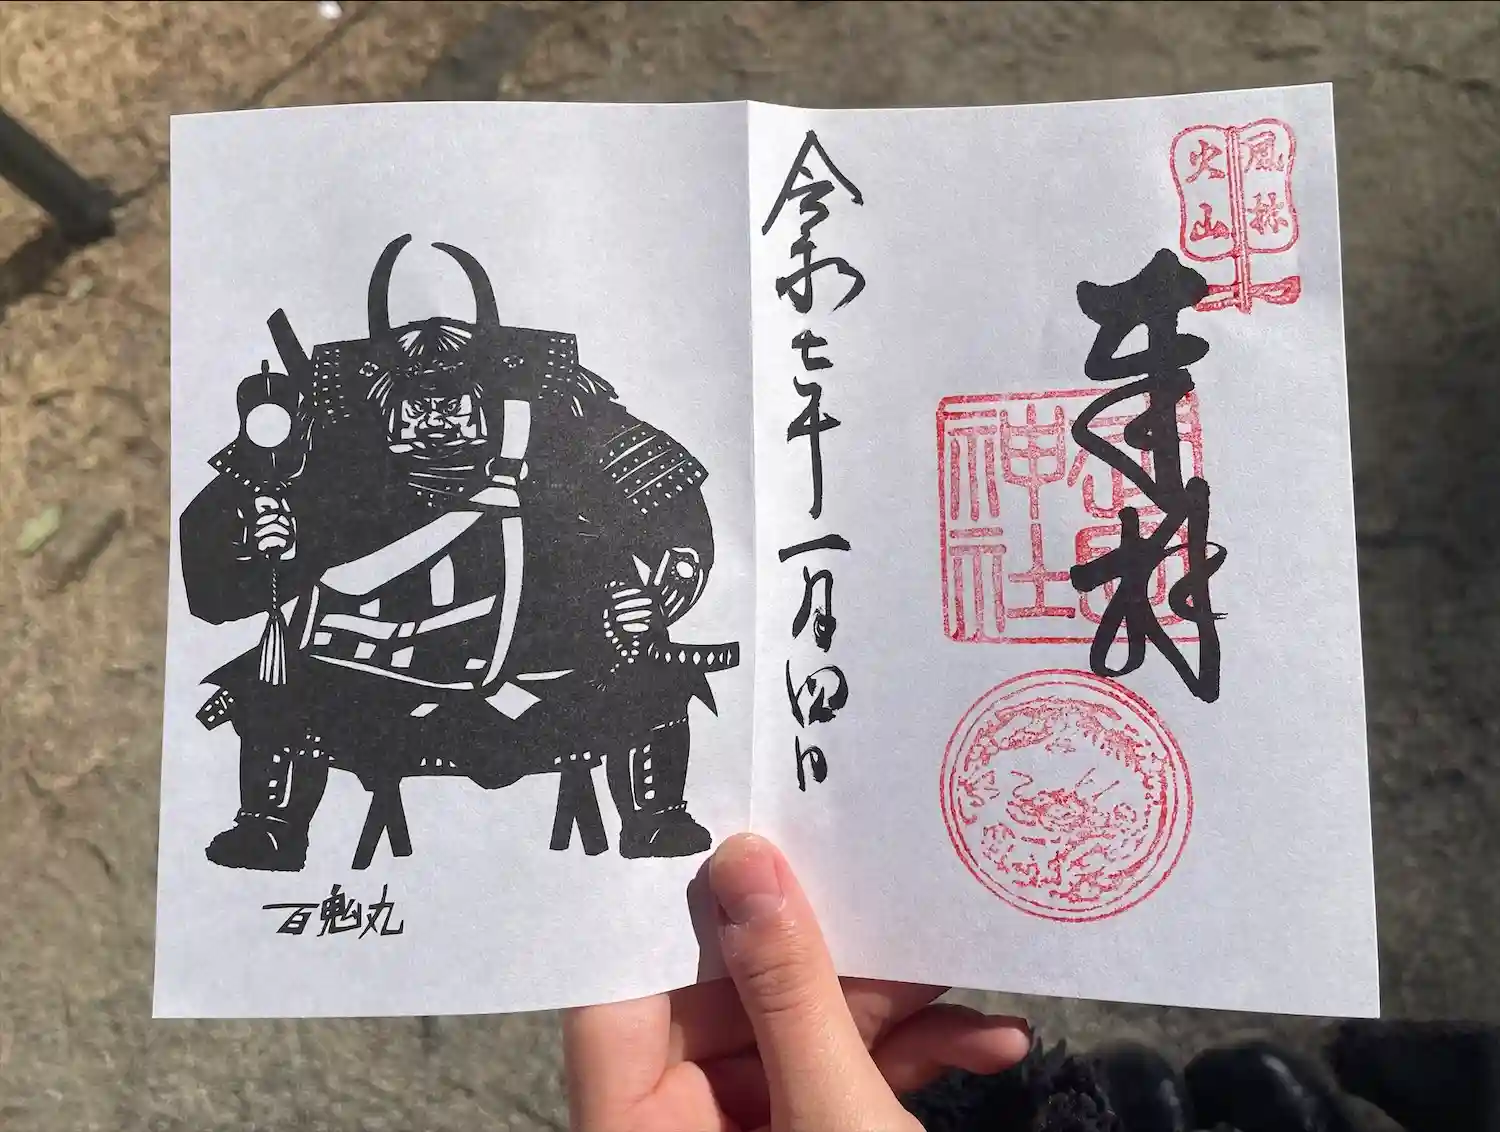 風林
火山
奉拝
神社
令和七年一月四日
百鬼丸